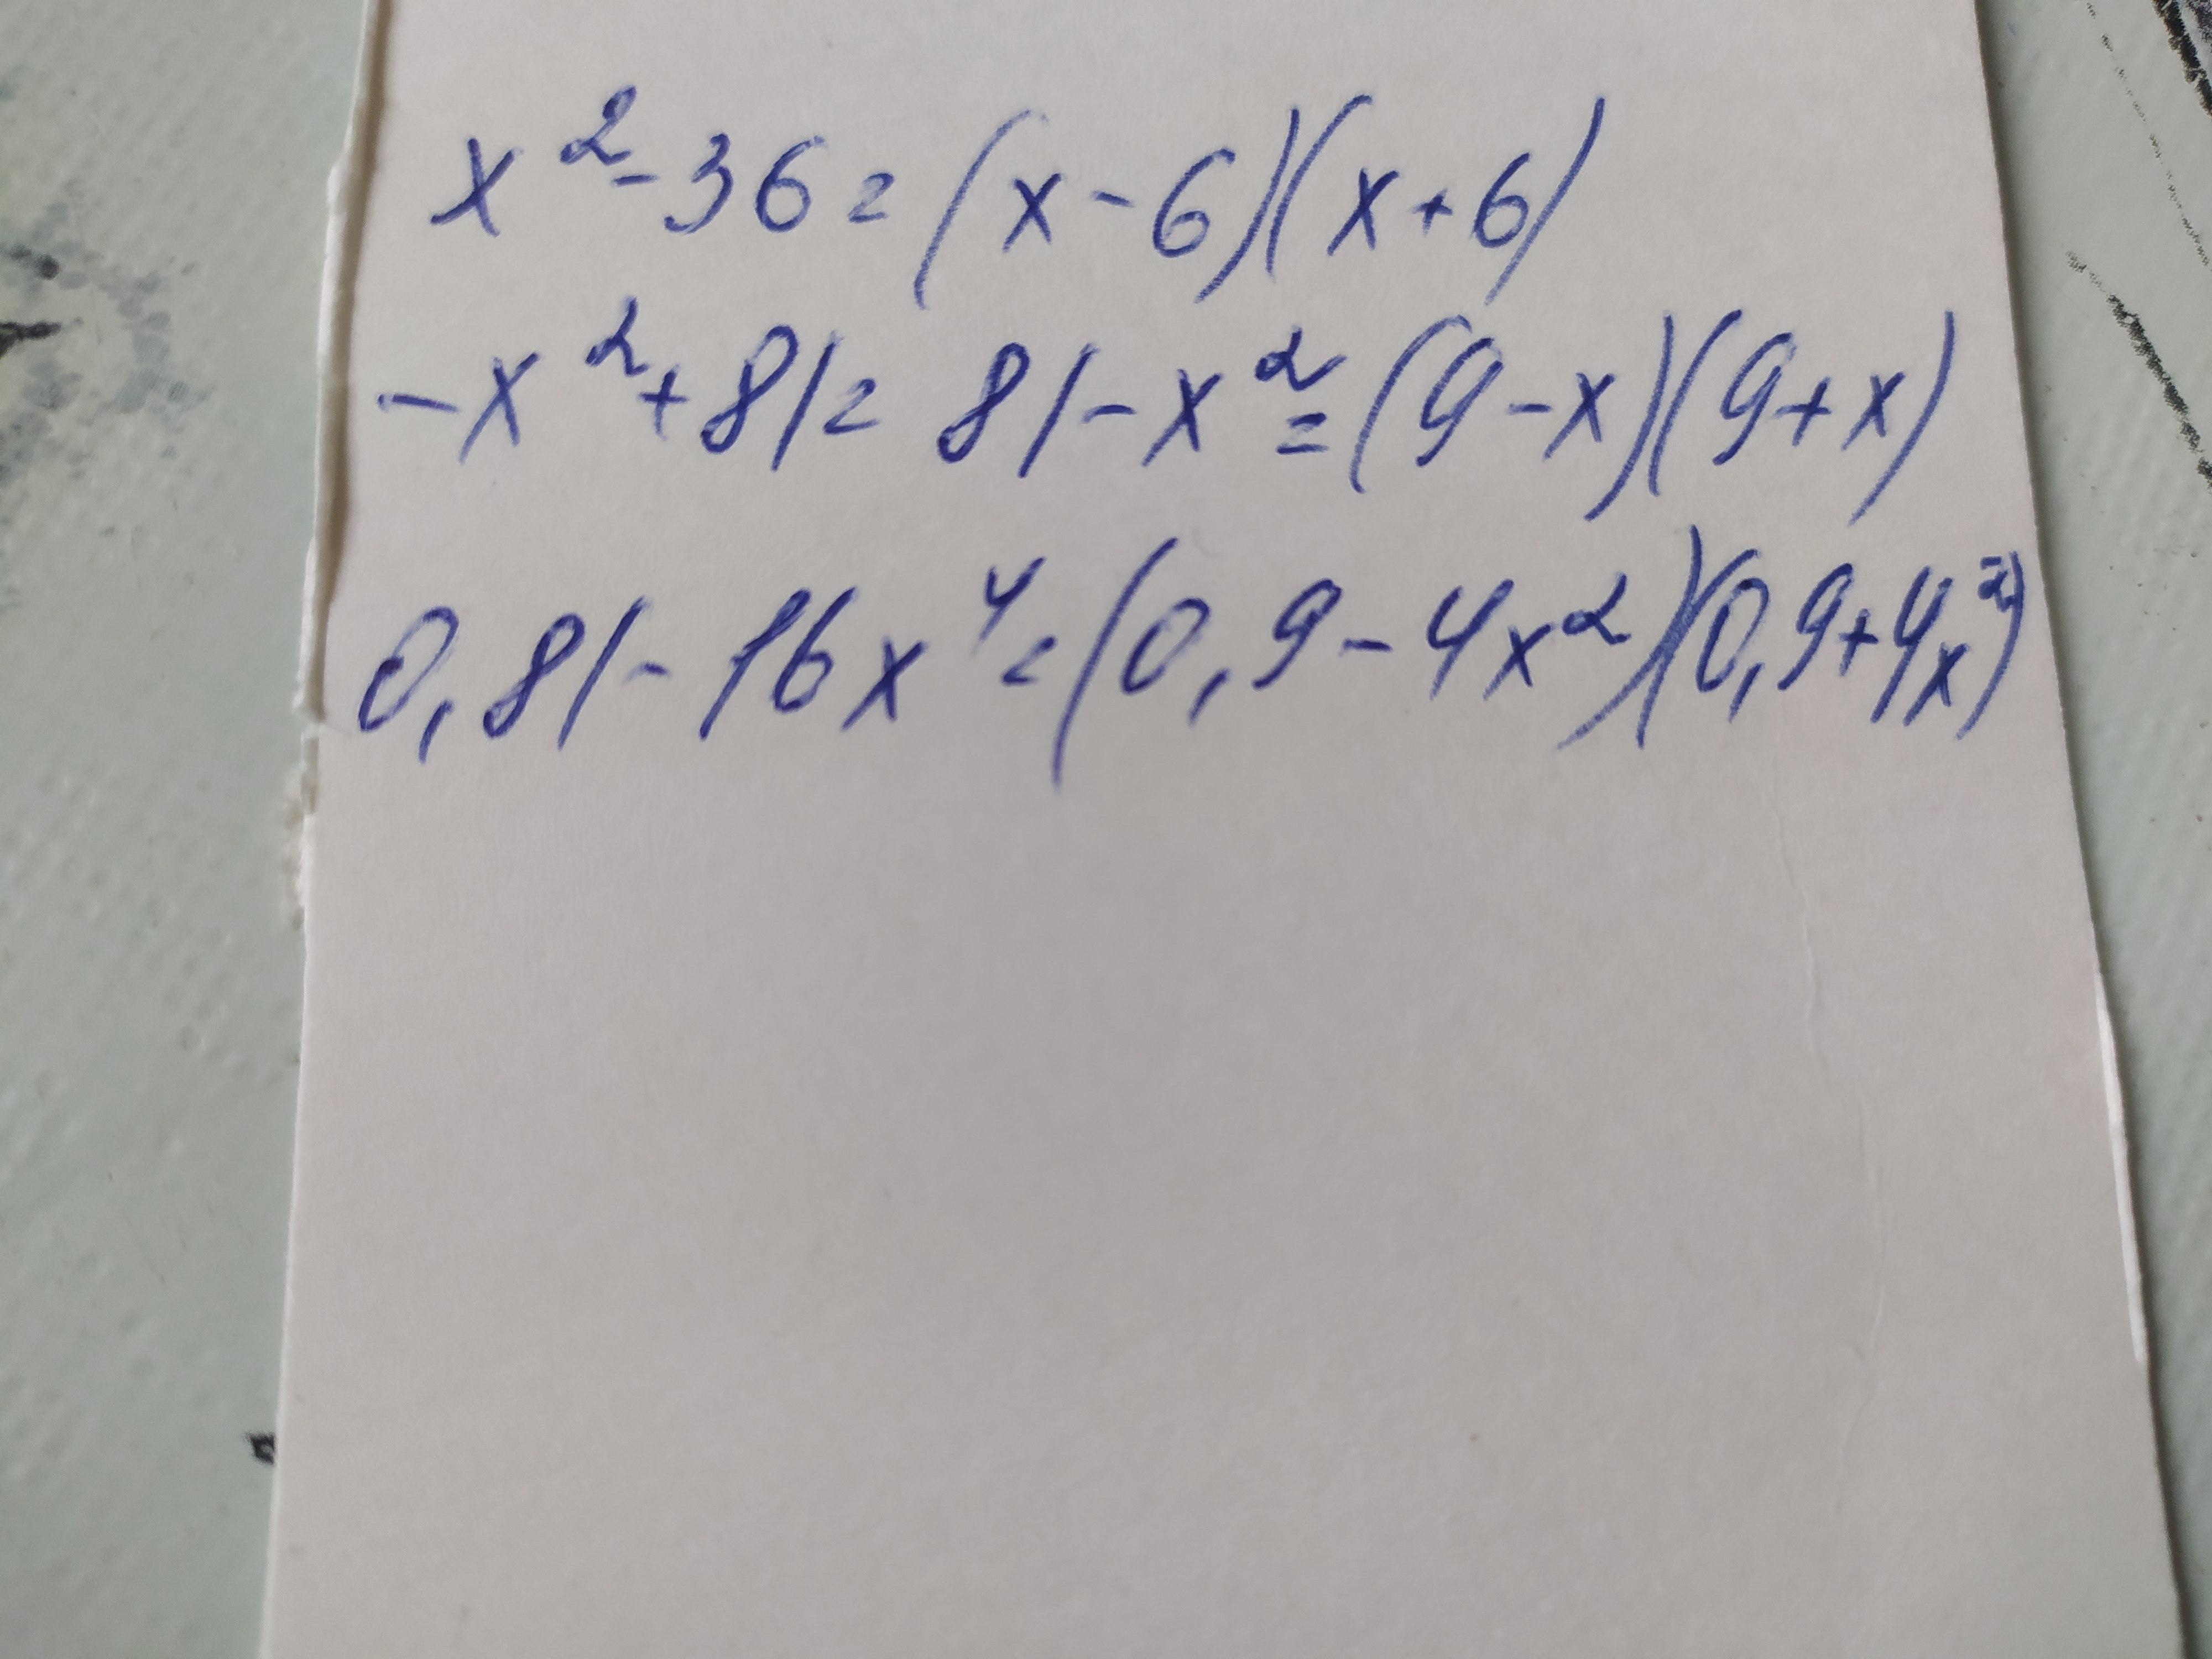 x² - 36 = (x - 6)(x + 6)
-x² + 81 = 81 - x² = (9 - x)(9 + x)
0,81 - 16x⁴ = (0,9 - 4x²)(0,9 + 4x²)